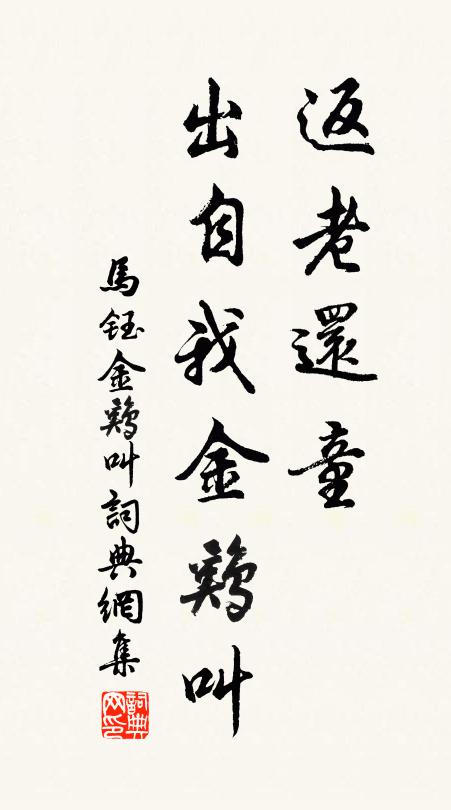 返老還童
出自我金鷄叫
馬鈺金鷄叫詞典網集
詞典網印